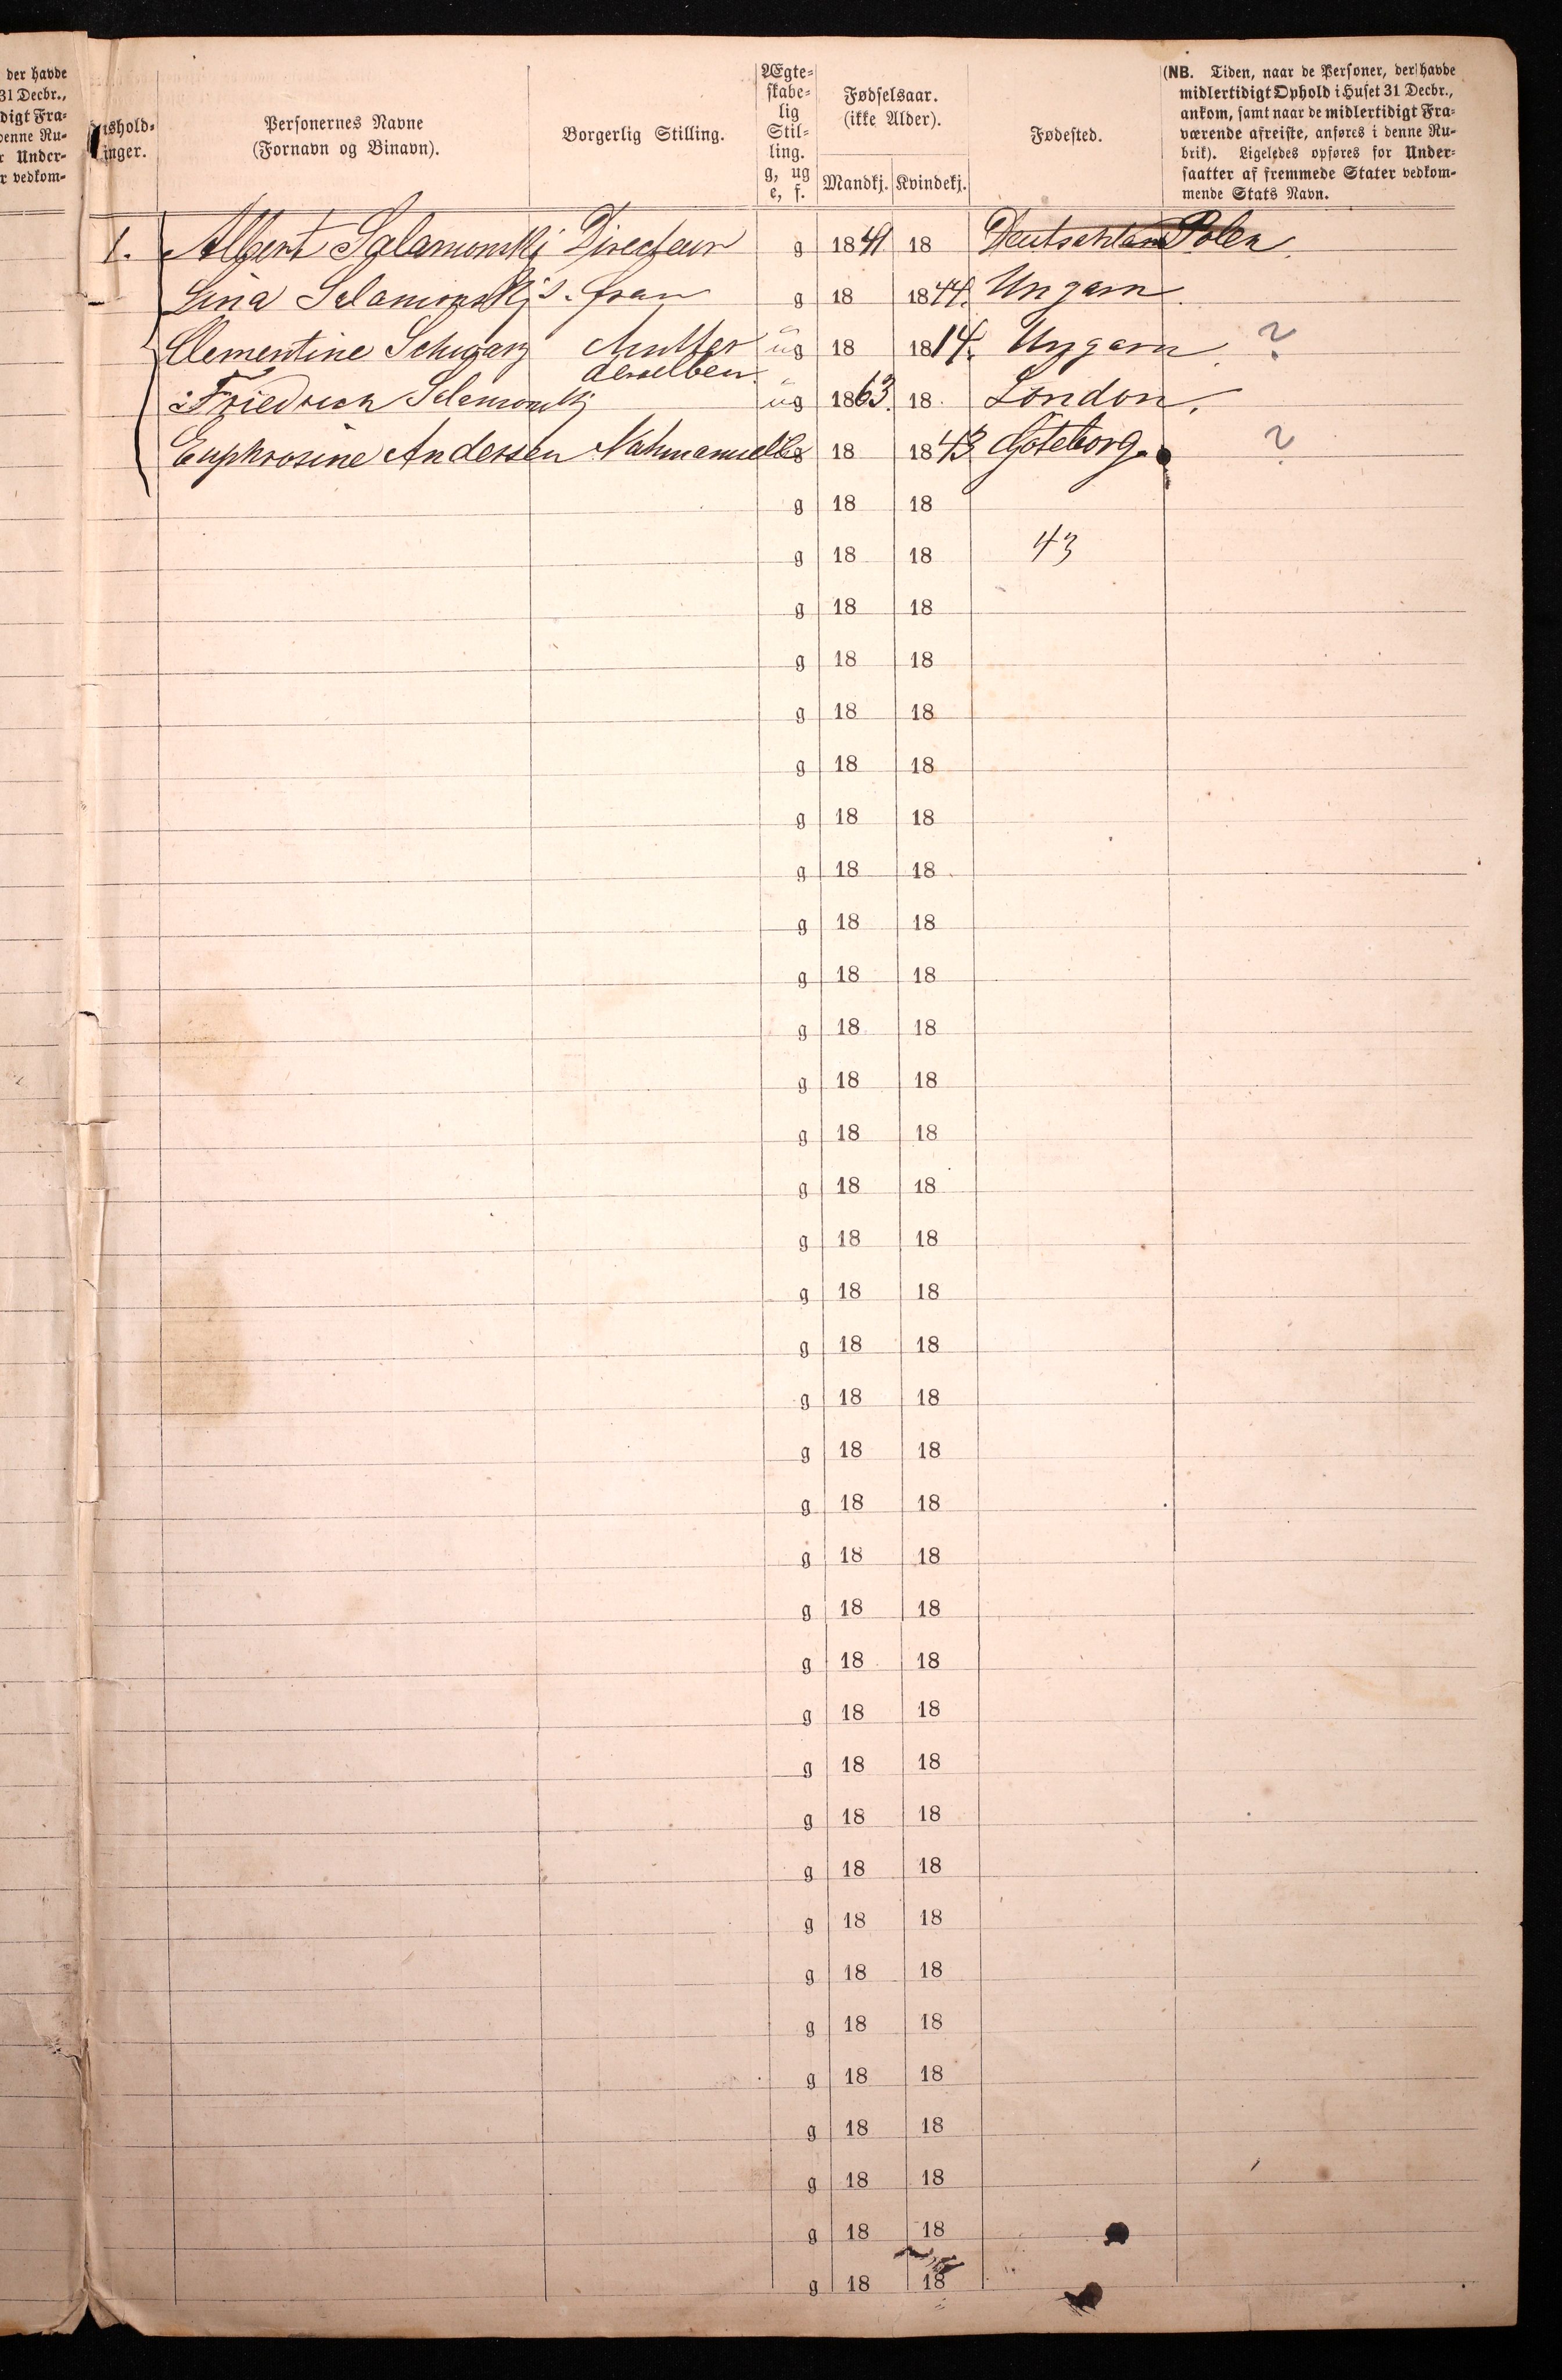 der havde
31 Decbr.,
digt Fra-
denne Ru-
r Under-
r vedkom-
ushold-
inger.
Personernes Navne
(Fornavn og Binavn).
Borgerlig Stilling.
Ægte-
skabe-
lig
Stil-
ling.
g, ug
e, f.
Fødselsaar.
(ikke Alder).
Mandkj. Kvindekj.
Fødested.
(NB. Tiden, naar de Personer, der havde
midlertidigt Ophold i Huset 31 Decbr.,
ankom, samt naar de midlertidigt Fra-
værende afreiste, anføres i denne Ru-
brik). Ligeledes opføres for Under-
saatter af fremmede Stater vedkom-
mende Stats Navn.
1. Albert Salamonski Directeur g 1841 18 Deutschland Polen.
Lina Salamonski s. frau g 18 1844. Ungarn
Clementine Schwarz Mutter derselben üg 18 1814. Ungarn ?
Friedrich Salamonski üg 1863. 18 London.
Euphrosine Andersen g 18 1843 Göteborg. ?
g 18 18
g 18 18 43
g 18 18
g 18 18
g 18 18
g 18 18
g 18 18
g 18 18
g 18 18
g 18 18
g 18 18
g 18 18
g 18 18
g 18 18
g 18 18
g 18 18
g 18 18
g 18 18
g 18 18
g 18 18
g 18 18
g 18 18
g 18 18
g 18 18
g 18 18
g 18 18
g 18 18
g 18 18
g 18 18
g 18 18
g 18 18
g 18 18
g 18 18
g 18 18
g 18 18